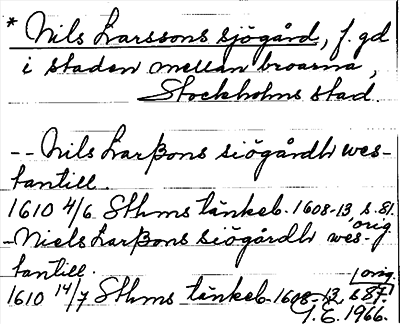 * Nils Larssons sjögård, f. gd
i staden mellan broarna,
Stockholms stad.
-- Nils Larßons siögårdh wes-
tantill.
1610 4/6. Sthms tänkeb. 1608-13, s. 81.
orig
- Niels Larßons siögårdh wes-
tantill.
orig.
1610 14/7 Sthms tänkeb. 1608-13 s 87.
1966.